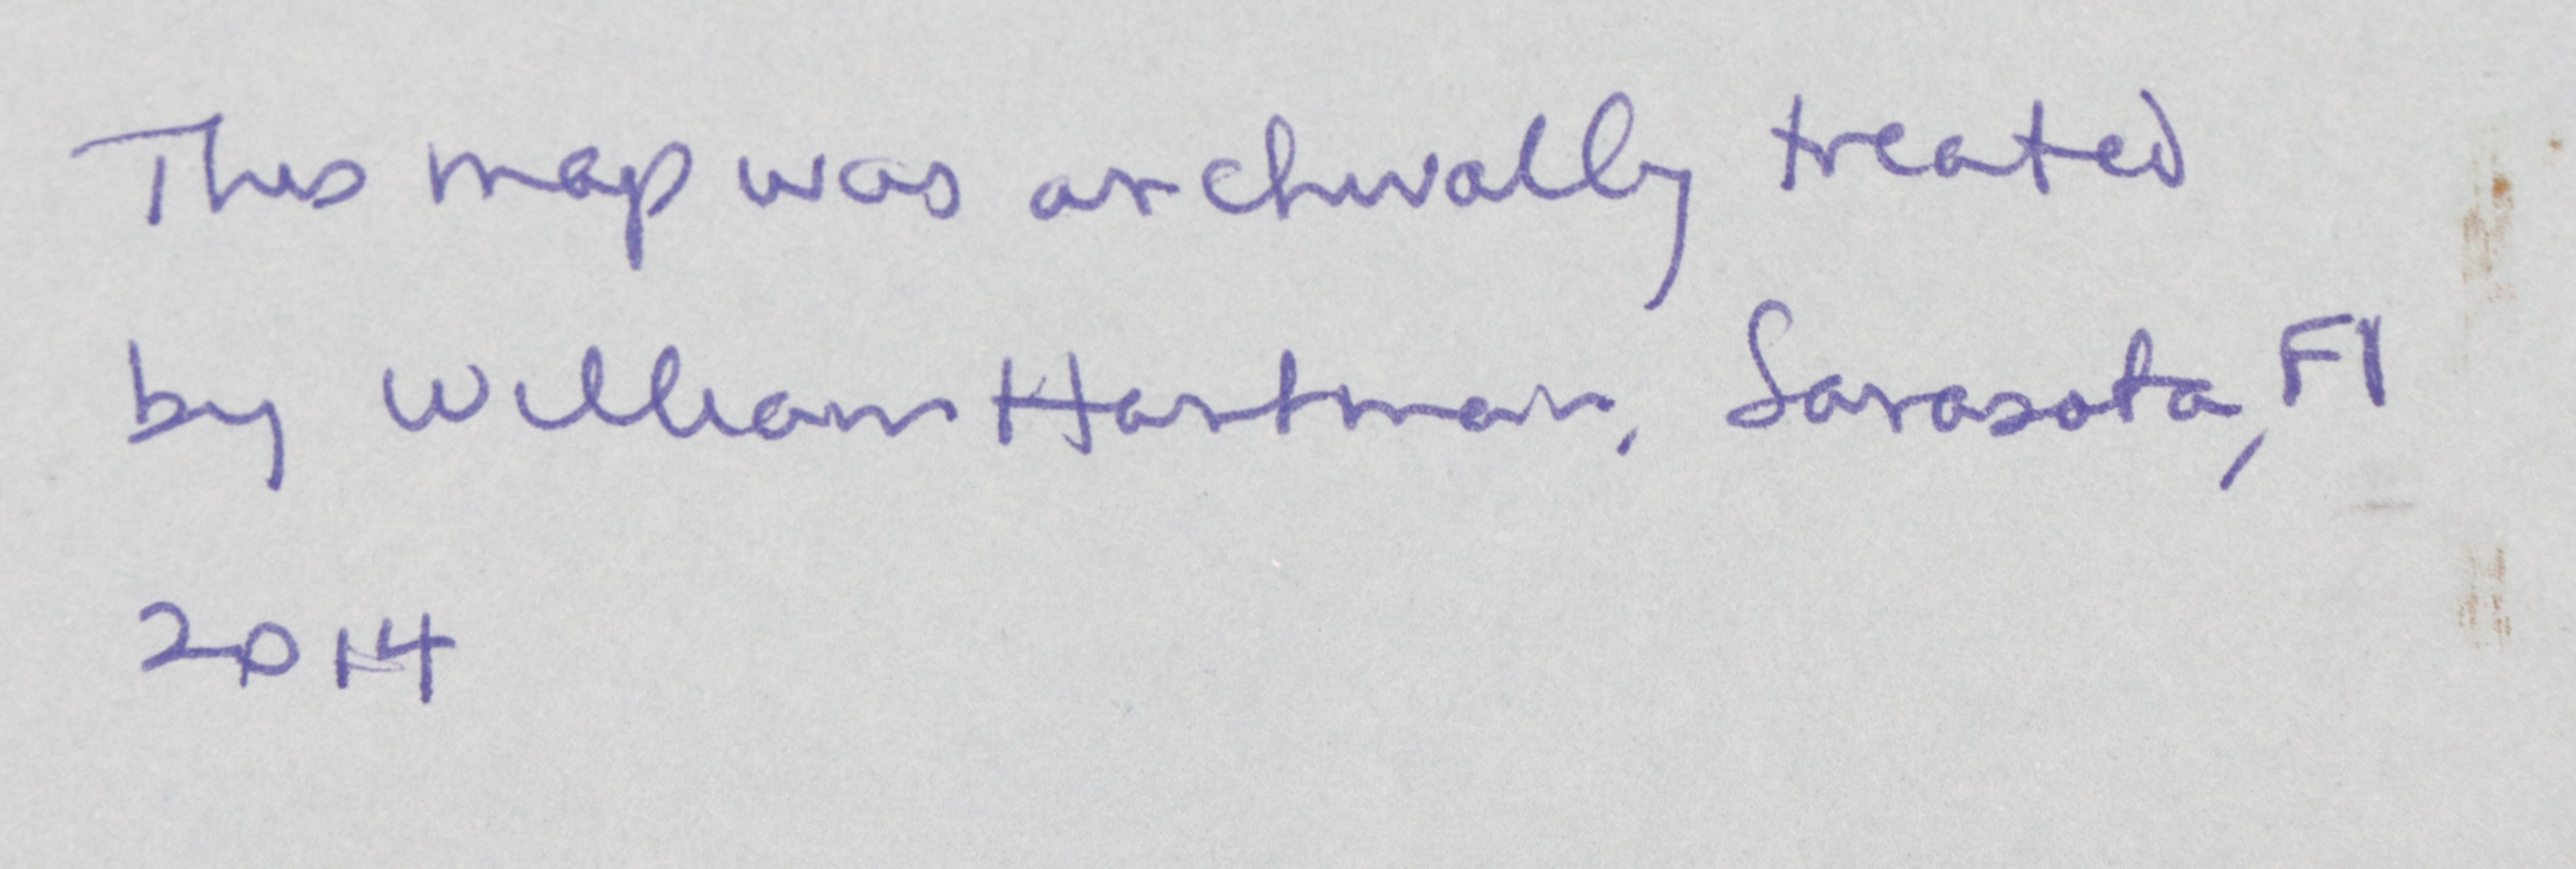 This map was archivally treated
by William Hartman, Sarasota, Fl
2014